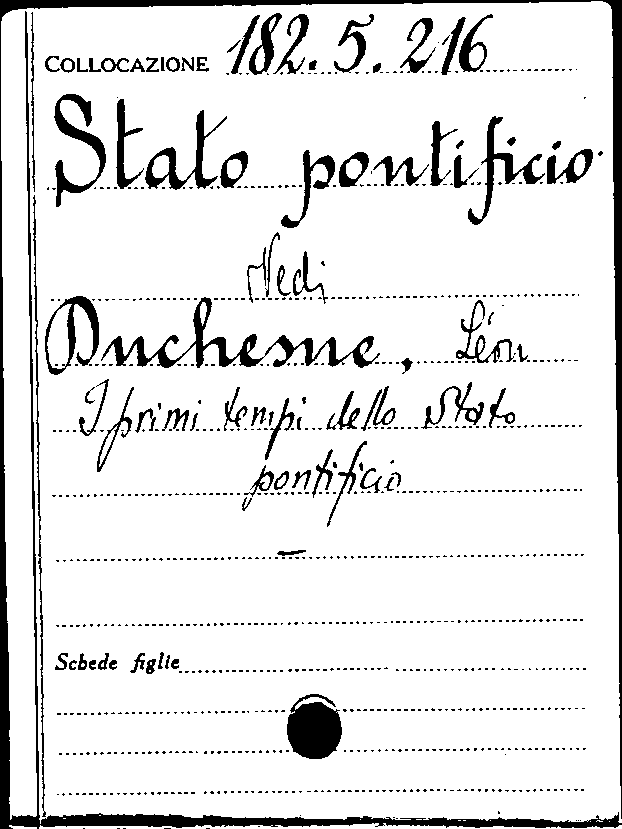 COLLOCAZIONE 182.5.216
Stato pontificio
Vedi
Duchesne, Léon
I primi tempi dello Stato
pontificio
—
Schede figlie